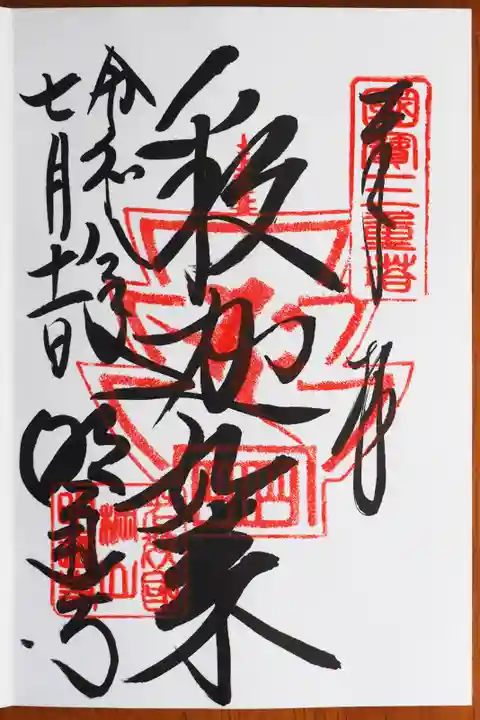 國寳三重塔
奉拝
釈迦如来
令和八年
七月十二日
明通寺
若狭國
棡山
明通寺